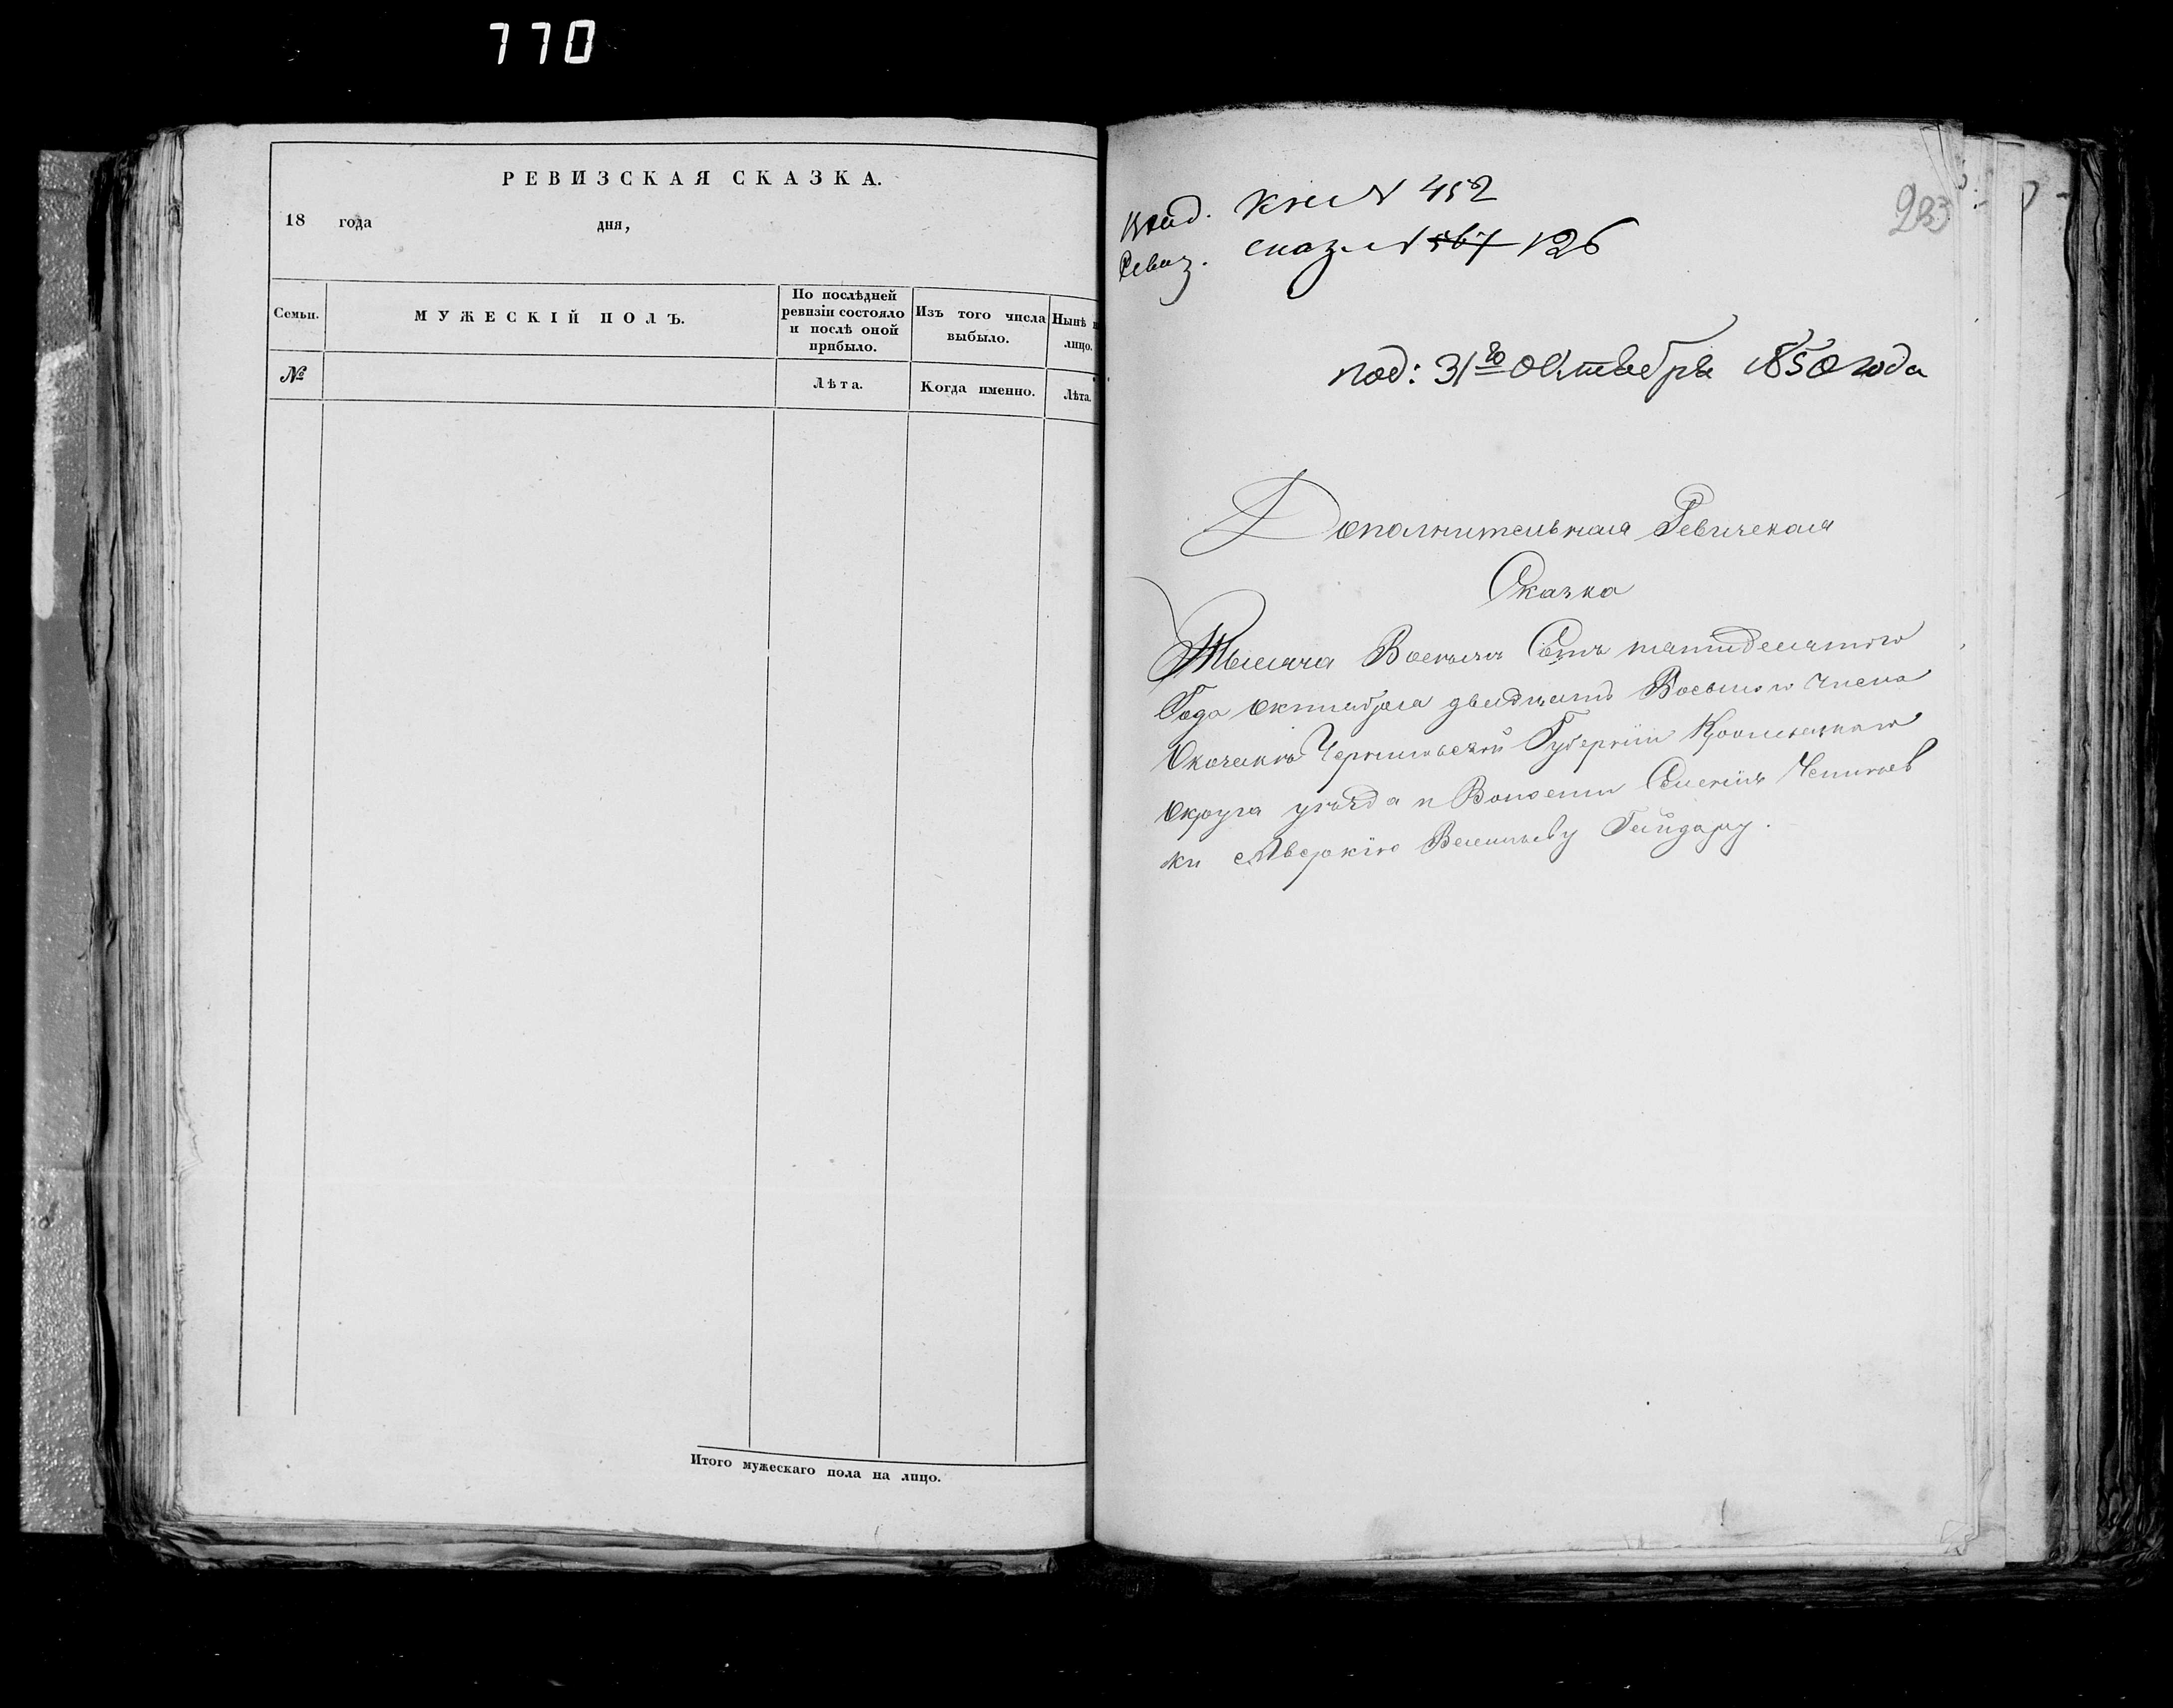 770
РЕВИЗСКАЯ СКАЗКА.
18 года дня,
Семьи.
МУЖЕСКІЙ ПОЛЪ.
По послѣдней ревизіи состояло и послѣ оной прибыло.
Изъ того числа выбыло.
Нынѣ
лицо.
№
Лѣта.
Когда именно.
Лѣта.
Итого мужескаго пола на лицо.
233
Вход. кн № 452
Ревиз. сказ. № 567 126
под: 31го октября 1850 года
Дополнительная Ревичекая
Сказка
Тысяча Восмъ Сотъ пятидесятого
Года октября двадцать Восьмого числа
Черниговской Губернии Кролевецкаго
Округа уѣзда и Волости
Аверкію Васильеву Гайдару.